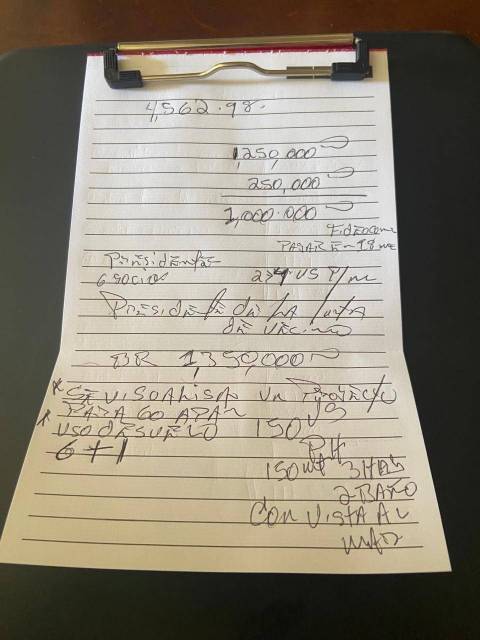 4,562.98.
1,250,000
250,000
1,000.000
PAGARE - 18
Presidente
6 socios US
Presidente de la
de vecino
1,350,000
* SE VISUALISA UN PROYECTO
* PARA 60 APAR
USO DE SUELO 150
6 + 1 PH
150 3 HAB
2 BAÑO
CON VISTA AL
MAR